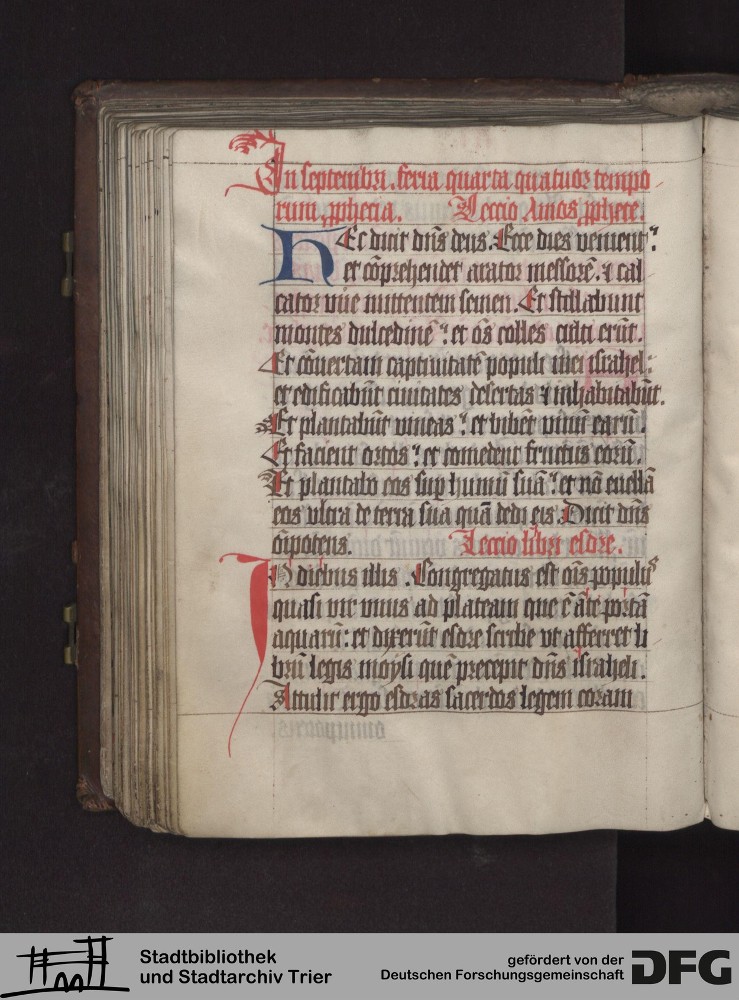 In septembri . feria quarta quatuor tempo
rum ꝓphecia . Leccio Amos ꝓphete .
HEc dicit dn̄s deus . Ecce dies venient :
et cōprehendet arator messorē . ⁊ cal
cator vue mittentem semen . Et stillabunt
montes dulcedinē : et om̄s colles culti erūt .
Et cōuertam captiuitatē populi mei israhel :
et edificabūt ciuitates desertas ⁊ inhabitabūt .
Et plantabūt vineas : et bibēt vinū earū .
Et facient ortos : et comedent fructus eorū .
Et plantabo eos suꝑ humū suā : et nō euellā
eos vltra de terra sua quā dedi eis . Dicit dn̄s
om̄ipotens . Leccio libri esdre .
IN diebus illis . Congregatus est om̄is populus
quasi vir vnus ad plateam que ē ante portā
aquarū : et dixerūt esdre scribe vt afferret li
brū legis moysi quē precepit dn̄s israheli .
Attulit ergo esdras sacerdos legem coram
Stadtbibliothek
und Stadtarchiv Trier
gefördert von der
Deutschen Forschungsgemeinschaft
DFG